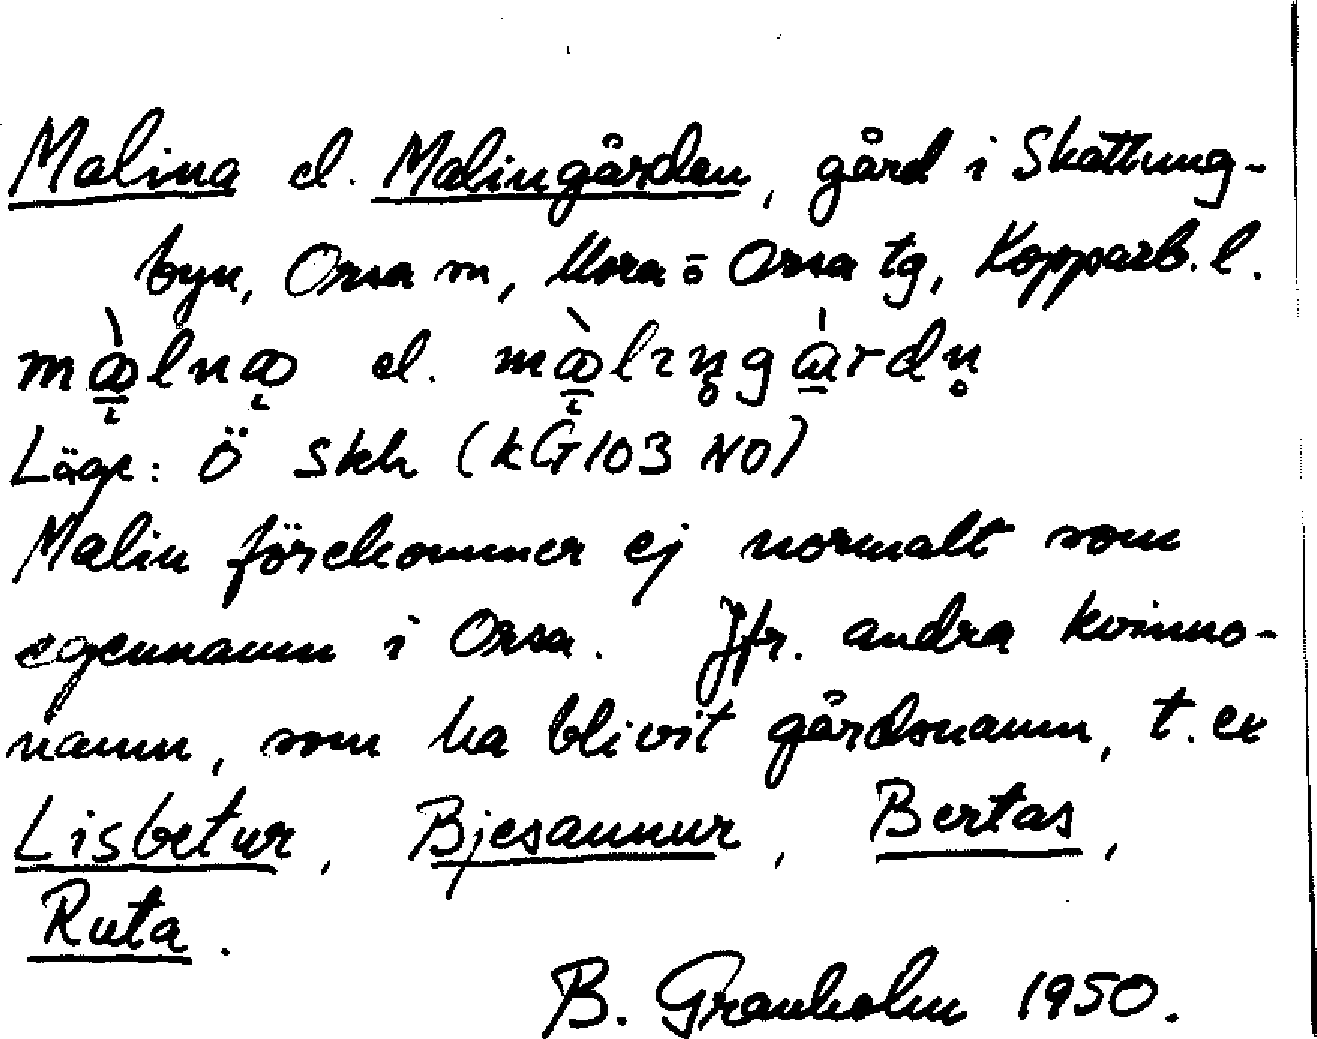 Malina el. Malingården, gård i Skattung-
byn, Orsa sn, Mora o Orsa tg, Kopparb. l.
el.
Läge: Ö Skh (kG 103 NO)
Malin förekommer ej normalt som
egennamn i Orsa. Jfr. andra kvinno-
namn, som ha blivit gårdsnamn, t. ex
Lisbetur, Bjesannur, Bertas,
Ruta.
B. Granholm 1950.